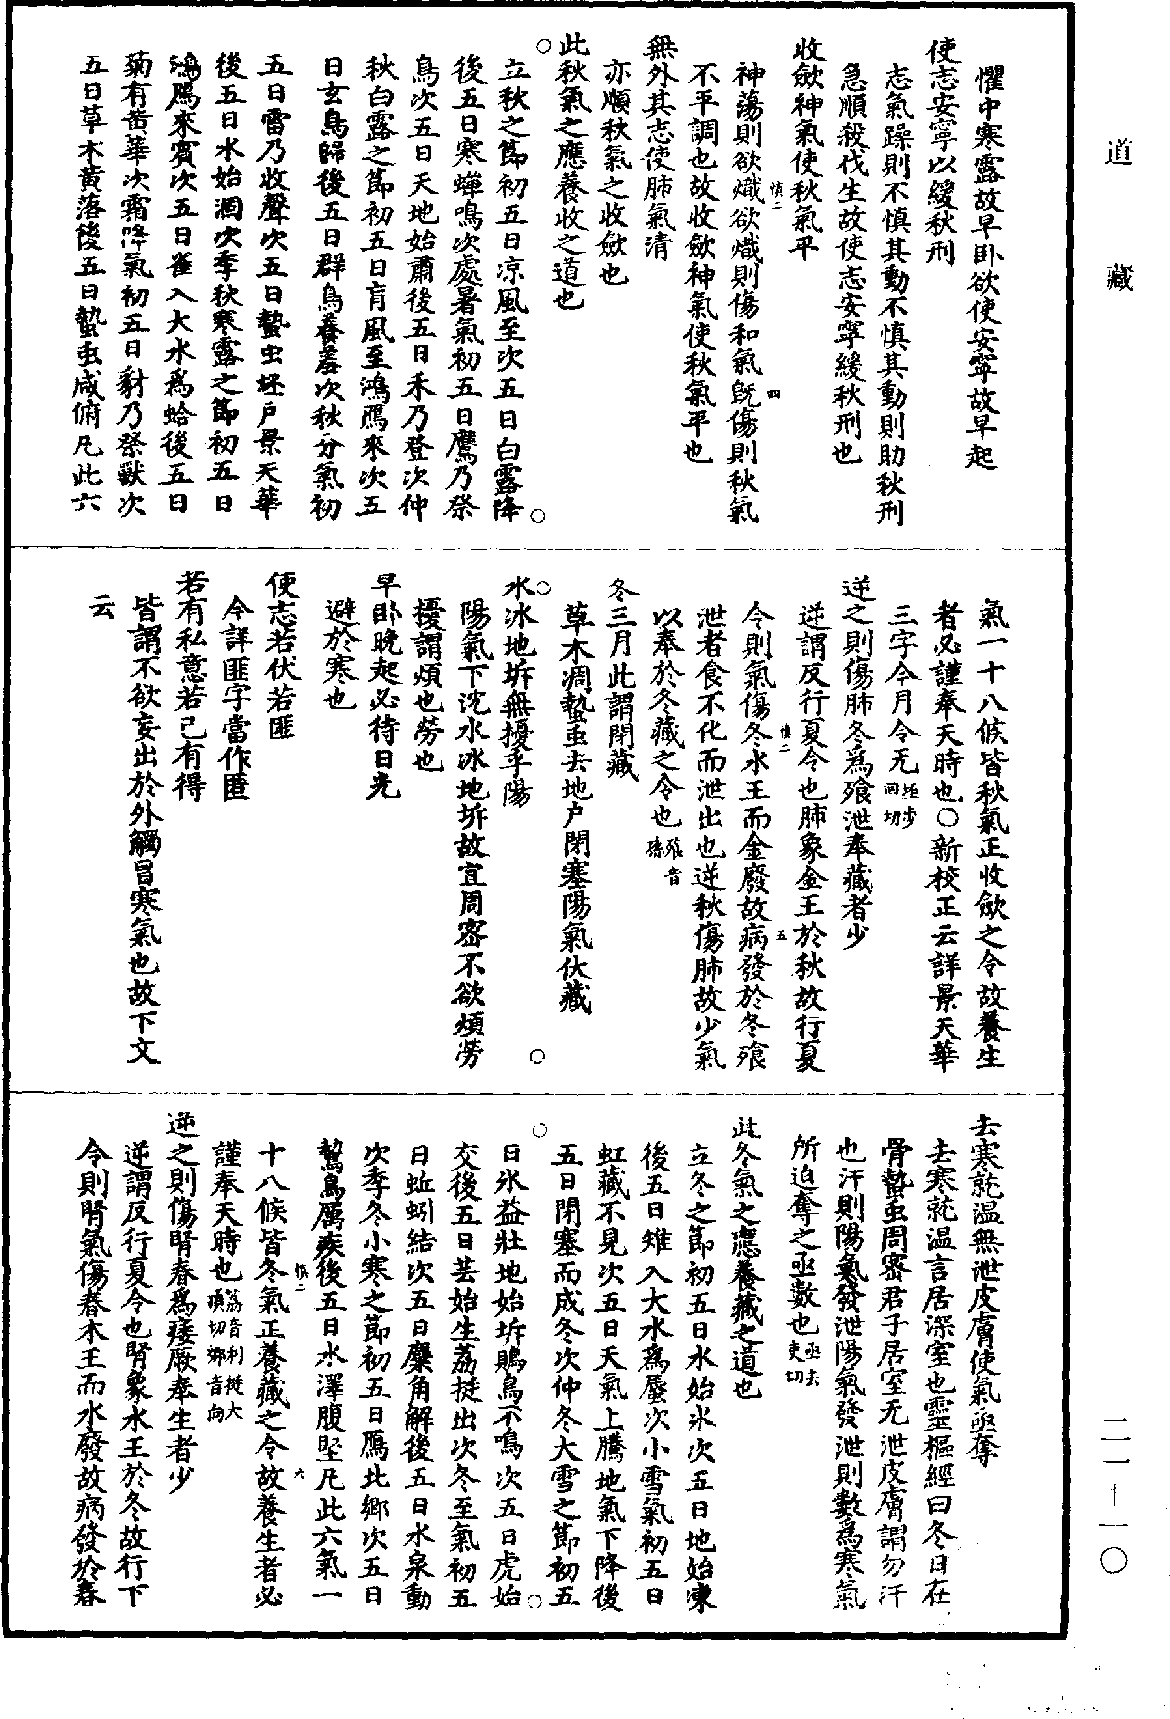 道藏
懼中寒露故早臥欲使安寧故早起
使志安寧以緩秋刑
志氣躁則不慎其動不慎其動則助秋刑
急順殺伐生故使志安寧緩秋刑也
收歛神氣使秋氣平
慎二
四
神蕩則欲熾欲熾則傷和氣旣傷則秋氣
不平調也故收歛神氣使秋氣平也
無外其志使肺氣清
亦順秋氣之收歛也
此秋氣之應養收之道也
立秋之節初五日凉風至次五日白露降
後五日寒蟬鳴次處暑氣初五日鷹乃祭
鳥次五日天地始肅後五日禾乃登次仲
秋白露之節初五日盲風至鴻鴈來次五
日玄鳥歸後五日群鳥養羞次秋分氣初
五日雷乃收聲次五日蟄虫坯戶景天華
後五日水始涸次季秋寒露之節初五日
鴻鴈來賓次五日雀入大水爲蛤後五日
菊有黃華次霜降氣初五日豺乃祭獸次
五日草木黃落後五日蟄虫咸俯凡此六
氣一十八候皆秋氣正收歛之令故養生
者必謹奉天時也○新校正云詳景天華
三字今月令无坯步回切
逆之則傷肺冬爲飧泄奉藏者少
逆謂反行夏令也肺象金王於秋故行夏
慎二
五
令則氣傷冬水王而金廢故病發於冬飧
泄者食不化而泄出也逆秋傷肺故少氣
以奉於冬藏之令也飧音孫
冬三月此謂閉藏
草木凋蟄虫去地戶閉塞陽氣伏藏
水冰地坼無擾乎陽
陽氣下沈水冰地坼故宜周密不欲煩勞
擾謂煩也勞也
早臥晚起必待日光
避於寒也
使志若伏若匪
今詳匪字當作匿
若有私意若已有得
皆謂不欲妄出於外觸冒寒氣也故下文
云
去寒就温無泄皮膚使氣亟奪
去寒就温言居深室也靈樞經曰冬日在
骨蟄虫周密君子居室无泄皮膚謂勿汗
也汗則陽氣發泄陽氣發泄則數爲寒氣
所迫奪之亟數也亟去吏切
此冬氣之應養藏之道也
立冬之節初五日水始氷次五日地始凍
後五日雉入大水爲蜃次小雪氣初五日
虹藏不見次五日天氣上騰地氣下降後
五日閉塞而成冬次仲冬大雪之節初五
日氷益壯地始坼鶡鳥不鳴次五日虎始
交後五日芸始生荔挺出次冬至氣初五
日蚯蚓結次五日麋角解後五日水泉動
次季冬小寒之節初五日鴈北鄉次五日
鷙鳥厲疾後五日水澤腹堅凡此六氣一
慎二
六
十八候皆冬氣正養藏之令故養生者必
謹奉天時也荔音利挺大頂切鄉音向
逆之則傷腎春爲痿厥奉生者少
逆謂反行夏令也腎象水王於冬故行下
令則腎氣傷春木王而水廢故病發於春
二一—一〇